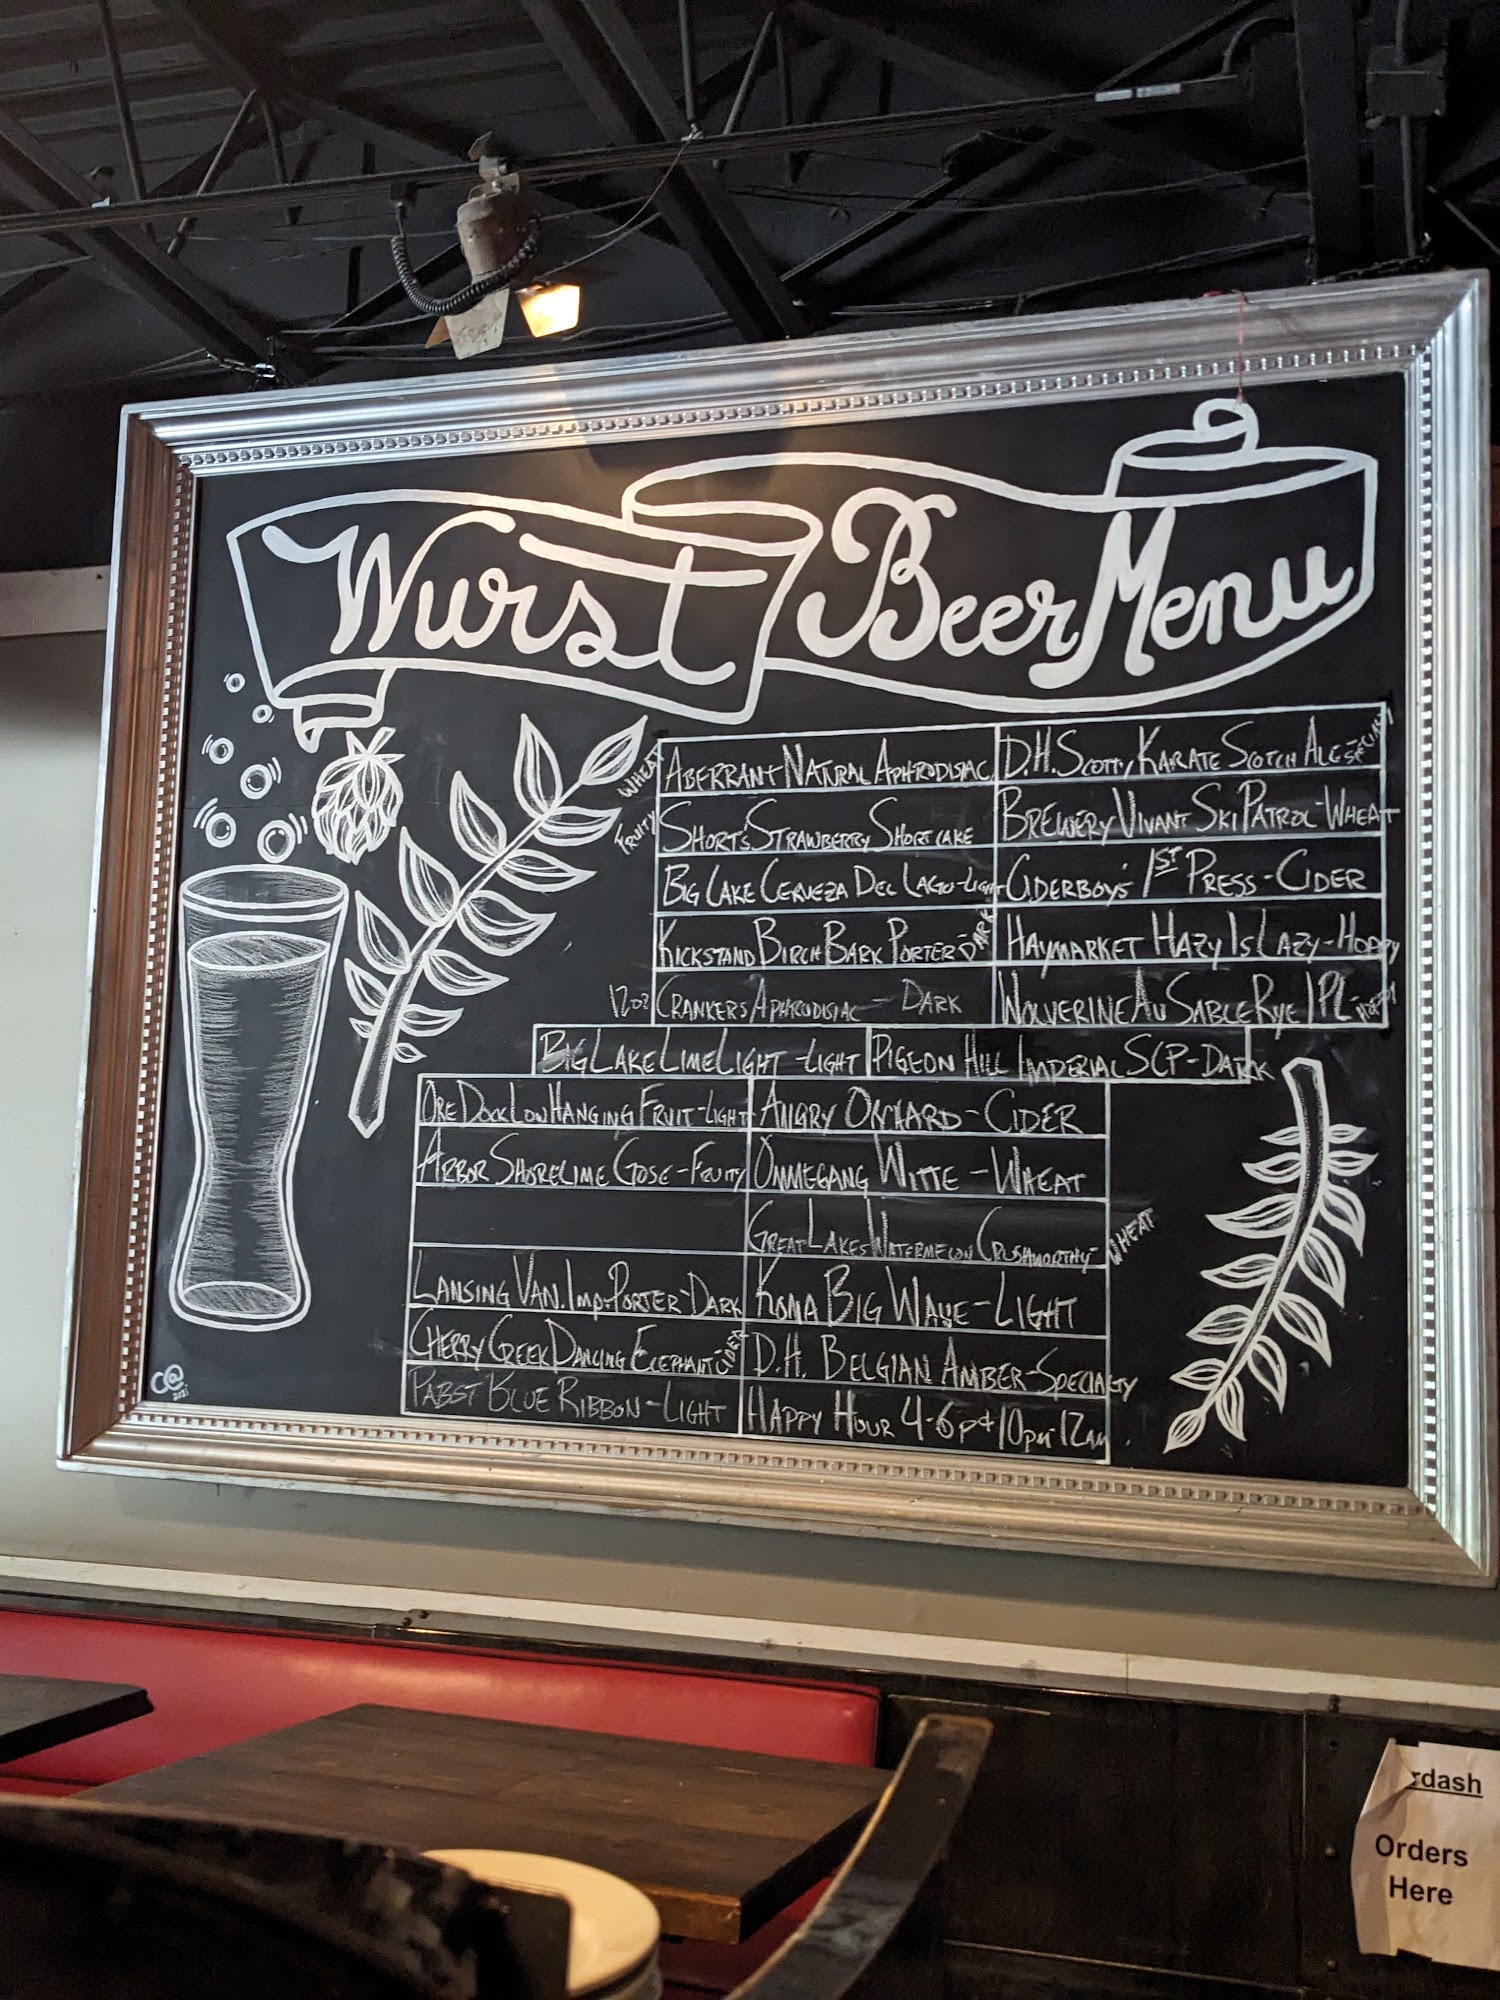 Wurst Beer Menu
ABERRANT NATURAL APHRODISIAC WHEAT
D.H. SCOTTY KARATE SCOTCH ALE SPECIALTY
SHORT'S STRAWBERRY SHORTCAKE FRUITY
BREWERY VIVANT SKI PATROL - WHEAT
BIG LAKE CERVEZA DEL LAGO - LIGHT
CIDERBOYS 1ST PRESS - CIDER
KICKSTAND BIRCH BARK PORTER - DARK
HAYMARKET HAZY IS LAZY - HOPPY
12oz CRANKERS APHRODISIAC - DARK
WOLVERINE AU SABLE RYE IPL - HOPPY
BIG LAKE LIME LIGHT - LIGHT
PIGEON HILL IMPERIAL SCP - DARK
ORE DOCK LOW HANGING FRUIT - LIGHT
ANGRY ORCHARD - CIDER
ARBOR SHORELIME GOSE - FRUITY
OMMEGANG WITTE - WHEAT
GREAT LAKES WATERMELON CRUSHWORTHY - WHEAT
LANSING VAN. IMP. PORTER - DARK
KONA BIG WAVE - LIGHT
CHERRY CREEK DANCING ELEPHANT CIDER
D.H. BELGIAN AMBER - SPECIALTY
PABST BLUE RIBBON - LIGHT
HAPPY HOUR 4-6p + 10pm 12am
C@
2021
rdash
Orders
Here